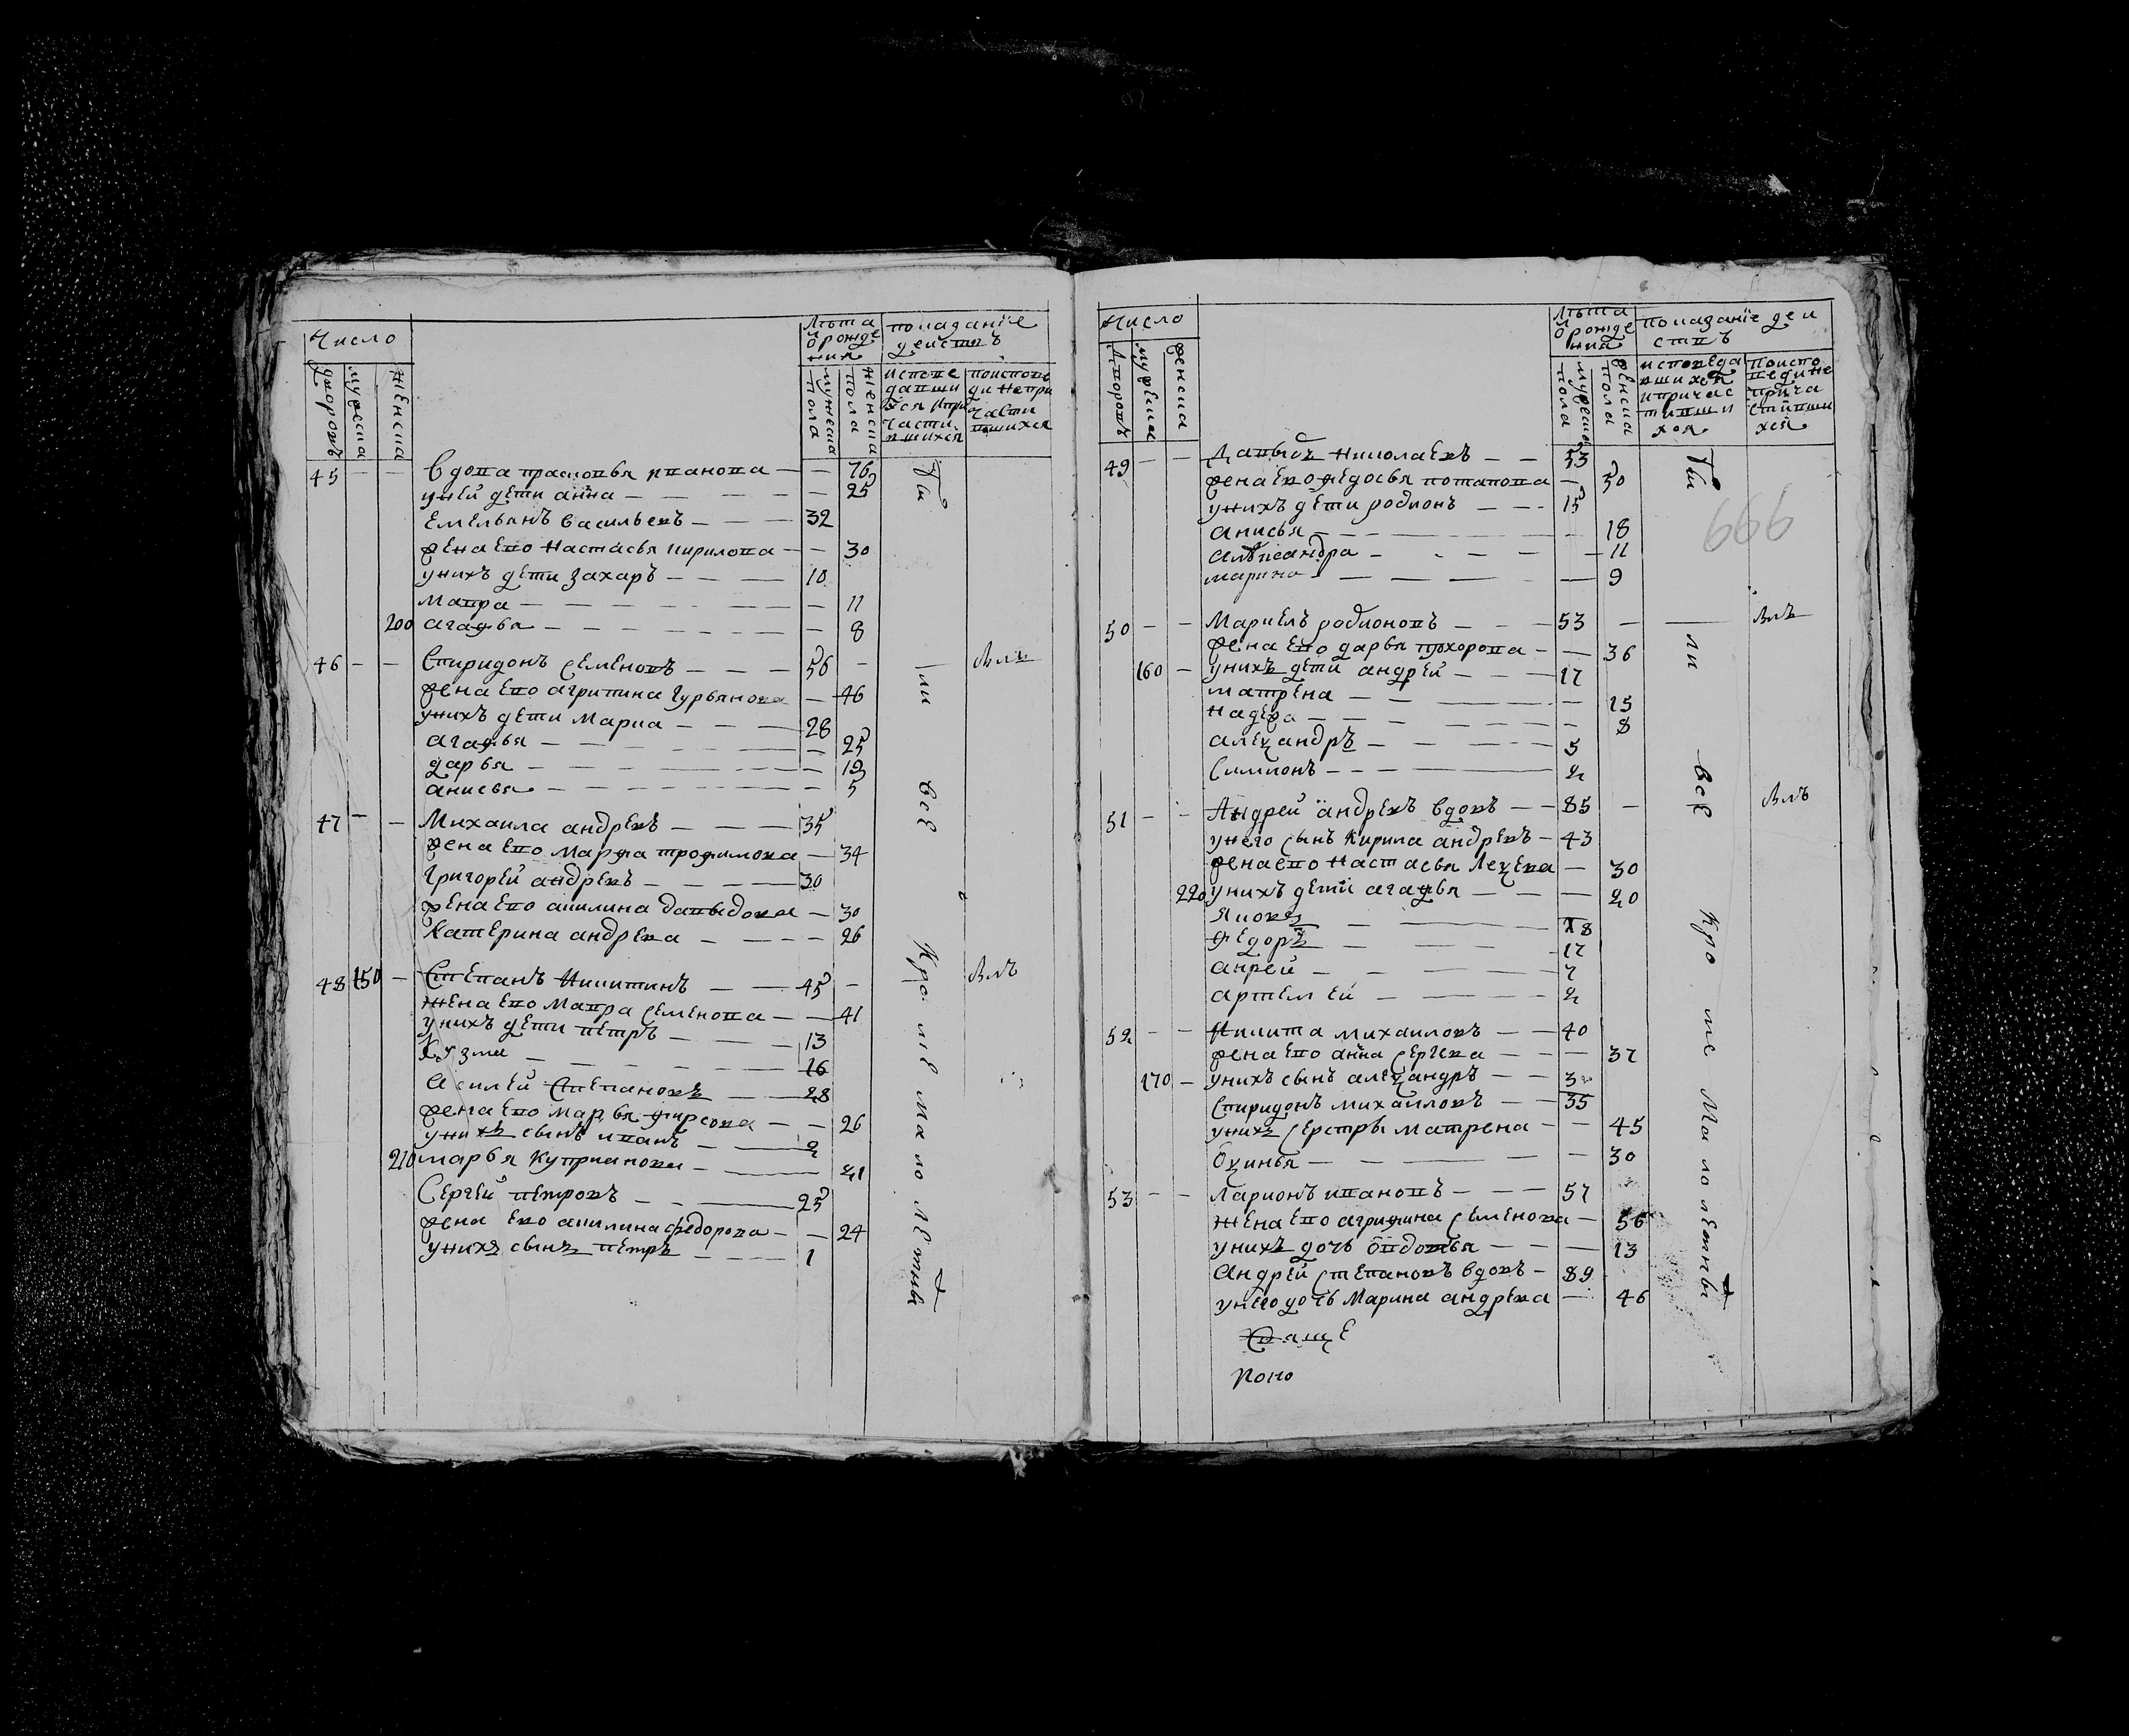 Число
Лѣта ѿ рожде ния
показание действъ
дворовъ
мужеска
женска
мужеска пола
женска пола
испове давши хся и при части вшихся
по испове ди не при части вшихся
45 — — вдова прасковья иванова — — 76
у ней дети анна — — 25
Емельянъ васильевъ — 32
жена Ево настасья кирилова — — 30
у нихъ дети захаръ — 10
мавра — — 11
200 агафья — — 8
46 — — Спиридонъ семеновъ — 56 — вмъ
жена Ево агрипина гурьянова — 46
у нихъ дети Марка — 28
агафья — — 25
дарья — — 19
анисья — — 5
47 — — Михаила андревъ — 35
жена Ево марфа трофимова — 34
Григорей андревъ — 30
жена Ево акилина давыдова — 30
Катерина андрева — — 26
48 150 — Степанъ никитинъ — 45 — вмъ
жена Ево мавра семенова — — 41
у нихъ дети петръ — 13
Кузма — 16
асилей степановъ — 28
жена Ево марья фирсова — — 26
у нихъ сынъ иванъ — 2
210 марья куприянова — 41
Сергей петровъ — 25
жена Ево акилина федорова — — 24
у нихъ сынъ петръ — 1
Ти ли все Кро ме мало летны
Число
Лѣта ѿ рожде ния
показание деи ствъ
дворовъ
мужеска
женска
мужеска пола
женска пола
исповеда вшихся и причас тивши хся
по испо веди не прича стивши хся
49 — — Давыдъ николаевъ — 53
жена Ево федосья потапова — 50
у нихъ дети родионъ — 15
анисья — — 18
алѣксандра — — 11
марина — — 9
666
50 — — Маркелъ родионовъ — 53 — вмъ
жена Ево дарья прохорова — — 36
160 — у нихъ дети андрей — 17
матрена — — 15
надежа — — 8
алеѯандръ — 5
Симионъ — 2
51 — — Андрей андревъ вдовъ — 85 — вмъ
у него сынъ кирила андревъ — 43
жена ево настасья Леѯева — 30
220 у нихъ дети агафья — — 20
яковъ — 18
федоръ — 17
анрей — 7
артемей — 2
52 — — Никита михаиловъ — 40
жена Ево анна сергева — — 37
170 — у нихъ сынъ алеѯандръ — 3
Спиридонъ михаиловъ — 35
у нихъ сестры матрена — — 45
Оѯинья — — 30
53 — — Ларионъ ивановъ — 57
жена Ево агрифина семенова — 56
у нихъ дочь овдотья — — 13
Андрей степановъ вдовъ — 89
у него дочь марина андрева — 46
Ти ли все Кро ме Мало летны